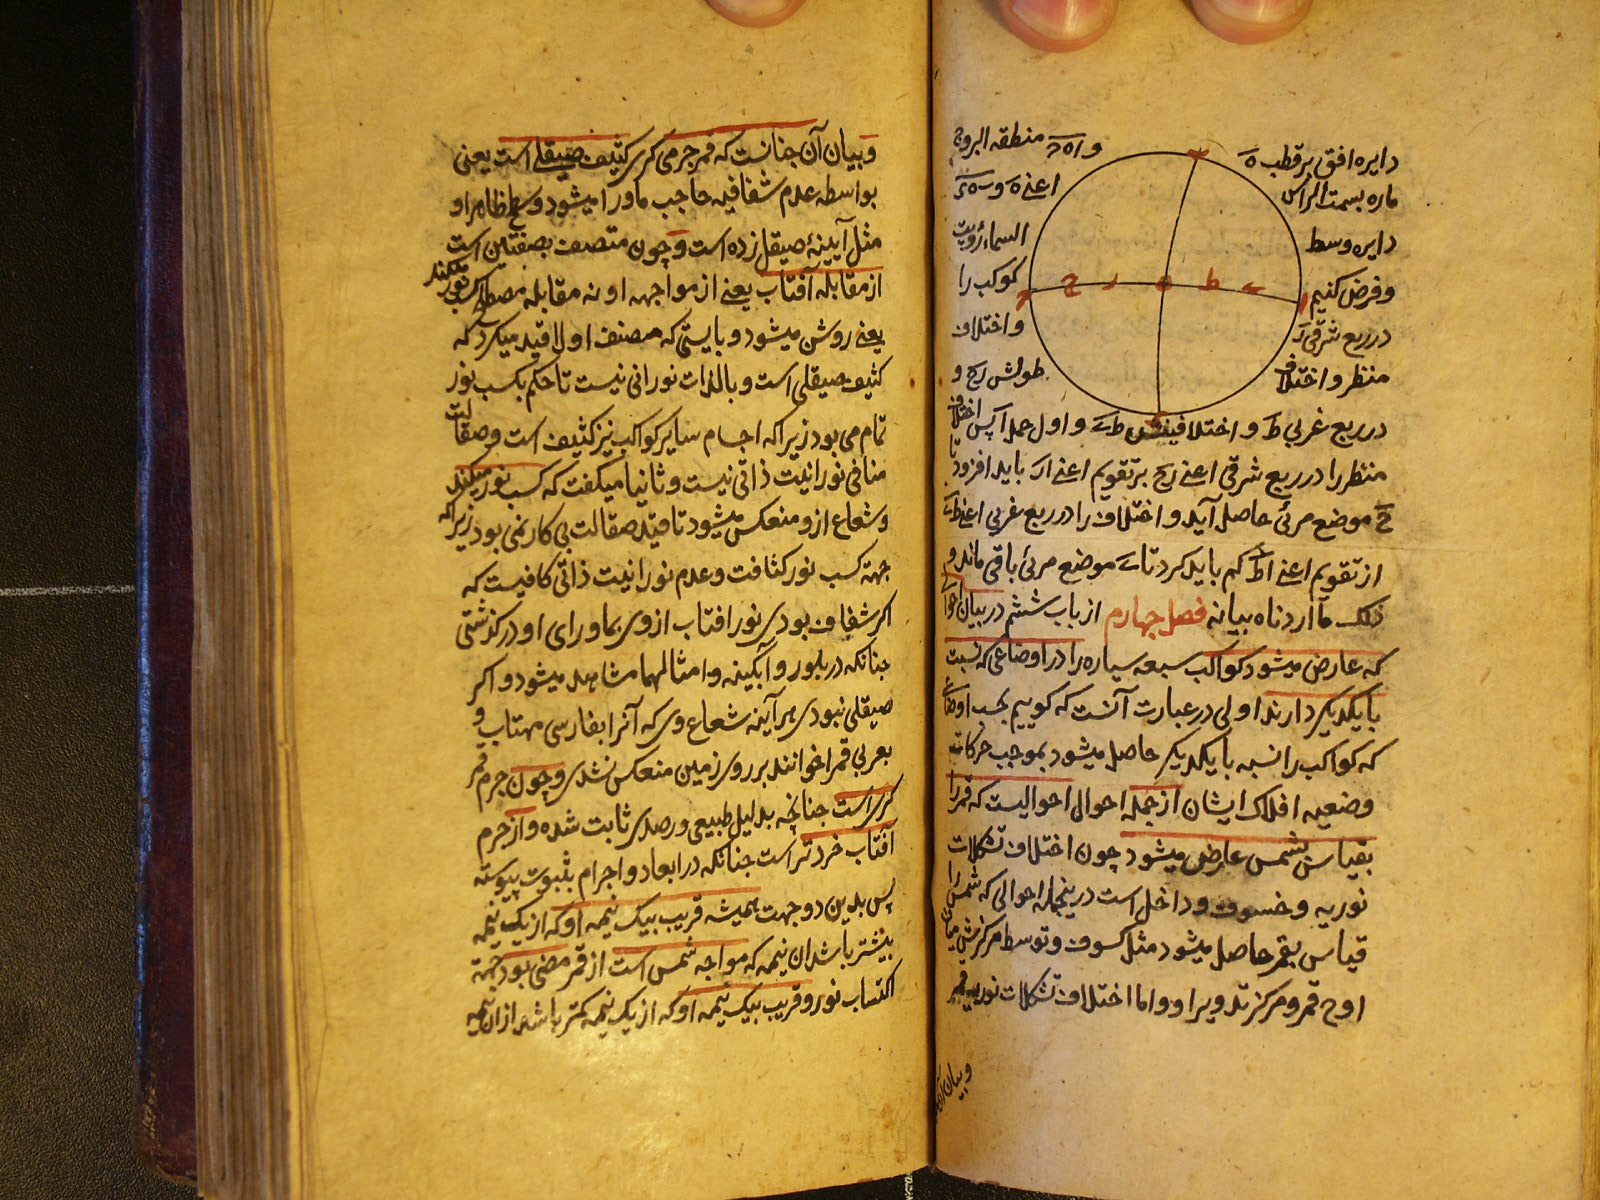 دایره افق بر قطب ه و اه‍ح منطقه البروج
ماره بسمت الراس اعنی
دایره وسط السماء رؤیت
و فرض کنیم کوکب را
در ربع شرقی و اختلاف
منظر و اختلاف طولش رح و
در ربع غربی ط و اختلاف و اول حمل آ پس اختلاف
منظر را در ربع شرقی اعنی رح بر تقویم اعنی ار باید افزود تا
ح موضع مرئی حاصل آید و اختلاف را در ربع غربی اعنی
از تقویم اعنی اط کم باید کرد تا موضع مرئی باقی ماند و
ذلک ما اردناه بیانه فصل چهارم از باب ششم در بیان احوالی
که عارض میشود کواکب سبعه سیاره را در اوضاعی که نسبت
با یکدیگر دارند اولی در عبارت آنست که کوییم بحسب اوضاعی
که کواکب را نسبه با یکدیگر حاصل میشود بموجب حرکات
وضعیه افلاک ایشان از جمله احوال احوالیست که قمر را
بقیاس بشمس عارض میشود چون اختلاف تشکلات
نوریه و خسوف و داخل است درینجمله احوالی که شمس را
قیاس بقمر حاصل میشود مثل کسوف و توسط مرکزش میان
اوج قمر و مرکز تدویر او و اما اختلاف تشکلات نوریه قمر
و بیان آن
و بیان آن جنانست که قمر جرمی کری کثیف صیقلی است یعنی
بواسطه عدم شفافیه حاجب ماورا میشود و سطح ظاهر او
مثل آیینهٔ صیقل زده است و چون متصف بصفتین است
از مقابله آفتاب یعنی از مواجهه او نه مقابله مصطلح کسب نور میکند
یعنی روشن میشود و بایستی که مصنف اولا قید میکرد که
کثیف صیقلی است و بالذات نورانی نیست تا حکم بکسب نور
تمام می بود زیرا که اجسام سایر کواکب نیز کثیف است و صقالت
منافی نورانیت ذاتی نیست و ثانیا میکفت که کسب نور میکند
و شعاع ازو منعکس میشود تا قید صقالت بی کار نمی بود زیرا که
جهة کسب نور کثافت و عدم نورانیت ذاتی کافیست که
اکر شفاف بودی نور افتاب ازوی بماورای او در کذشتی
جنانکه در بلور و آبکینه و امثالهما مشاهد میشود و اکر
صیقلی نبودی هر آینه شعاع وی که آنرا بفارسی مهتاب و
بعربی قمرا خوانند بر روی زمین منعکس نشدی و چون جرم قمر
کری است جنانچه بدلیل طبیعی و رصدی ثابت شده و از جرم
افتاب خردتر است جنانکه در ابعاد و اجرام بثبوت پیوسته
پس بدین دو جهت همیشه قریب بیک نیمه او که از یک نیمه
بیشتر باشد ان نیمه که مواجه شمس است از قمر مضئ بود جهة
اکتساب نور و قریب بیک نیمه او که از یک نیمه کمتر باشد از ان نیمه